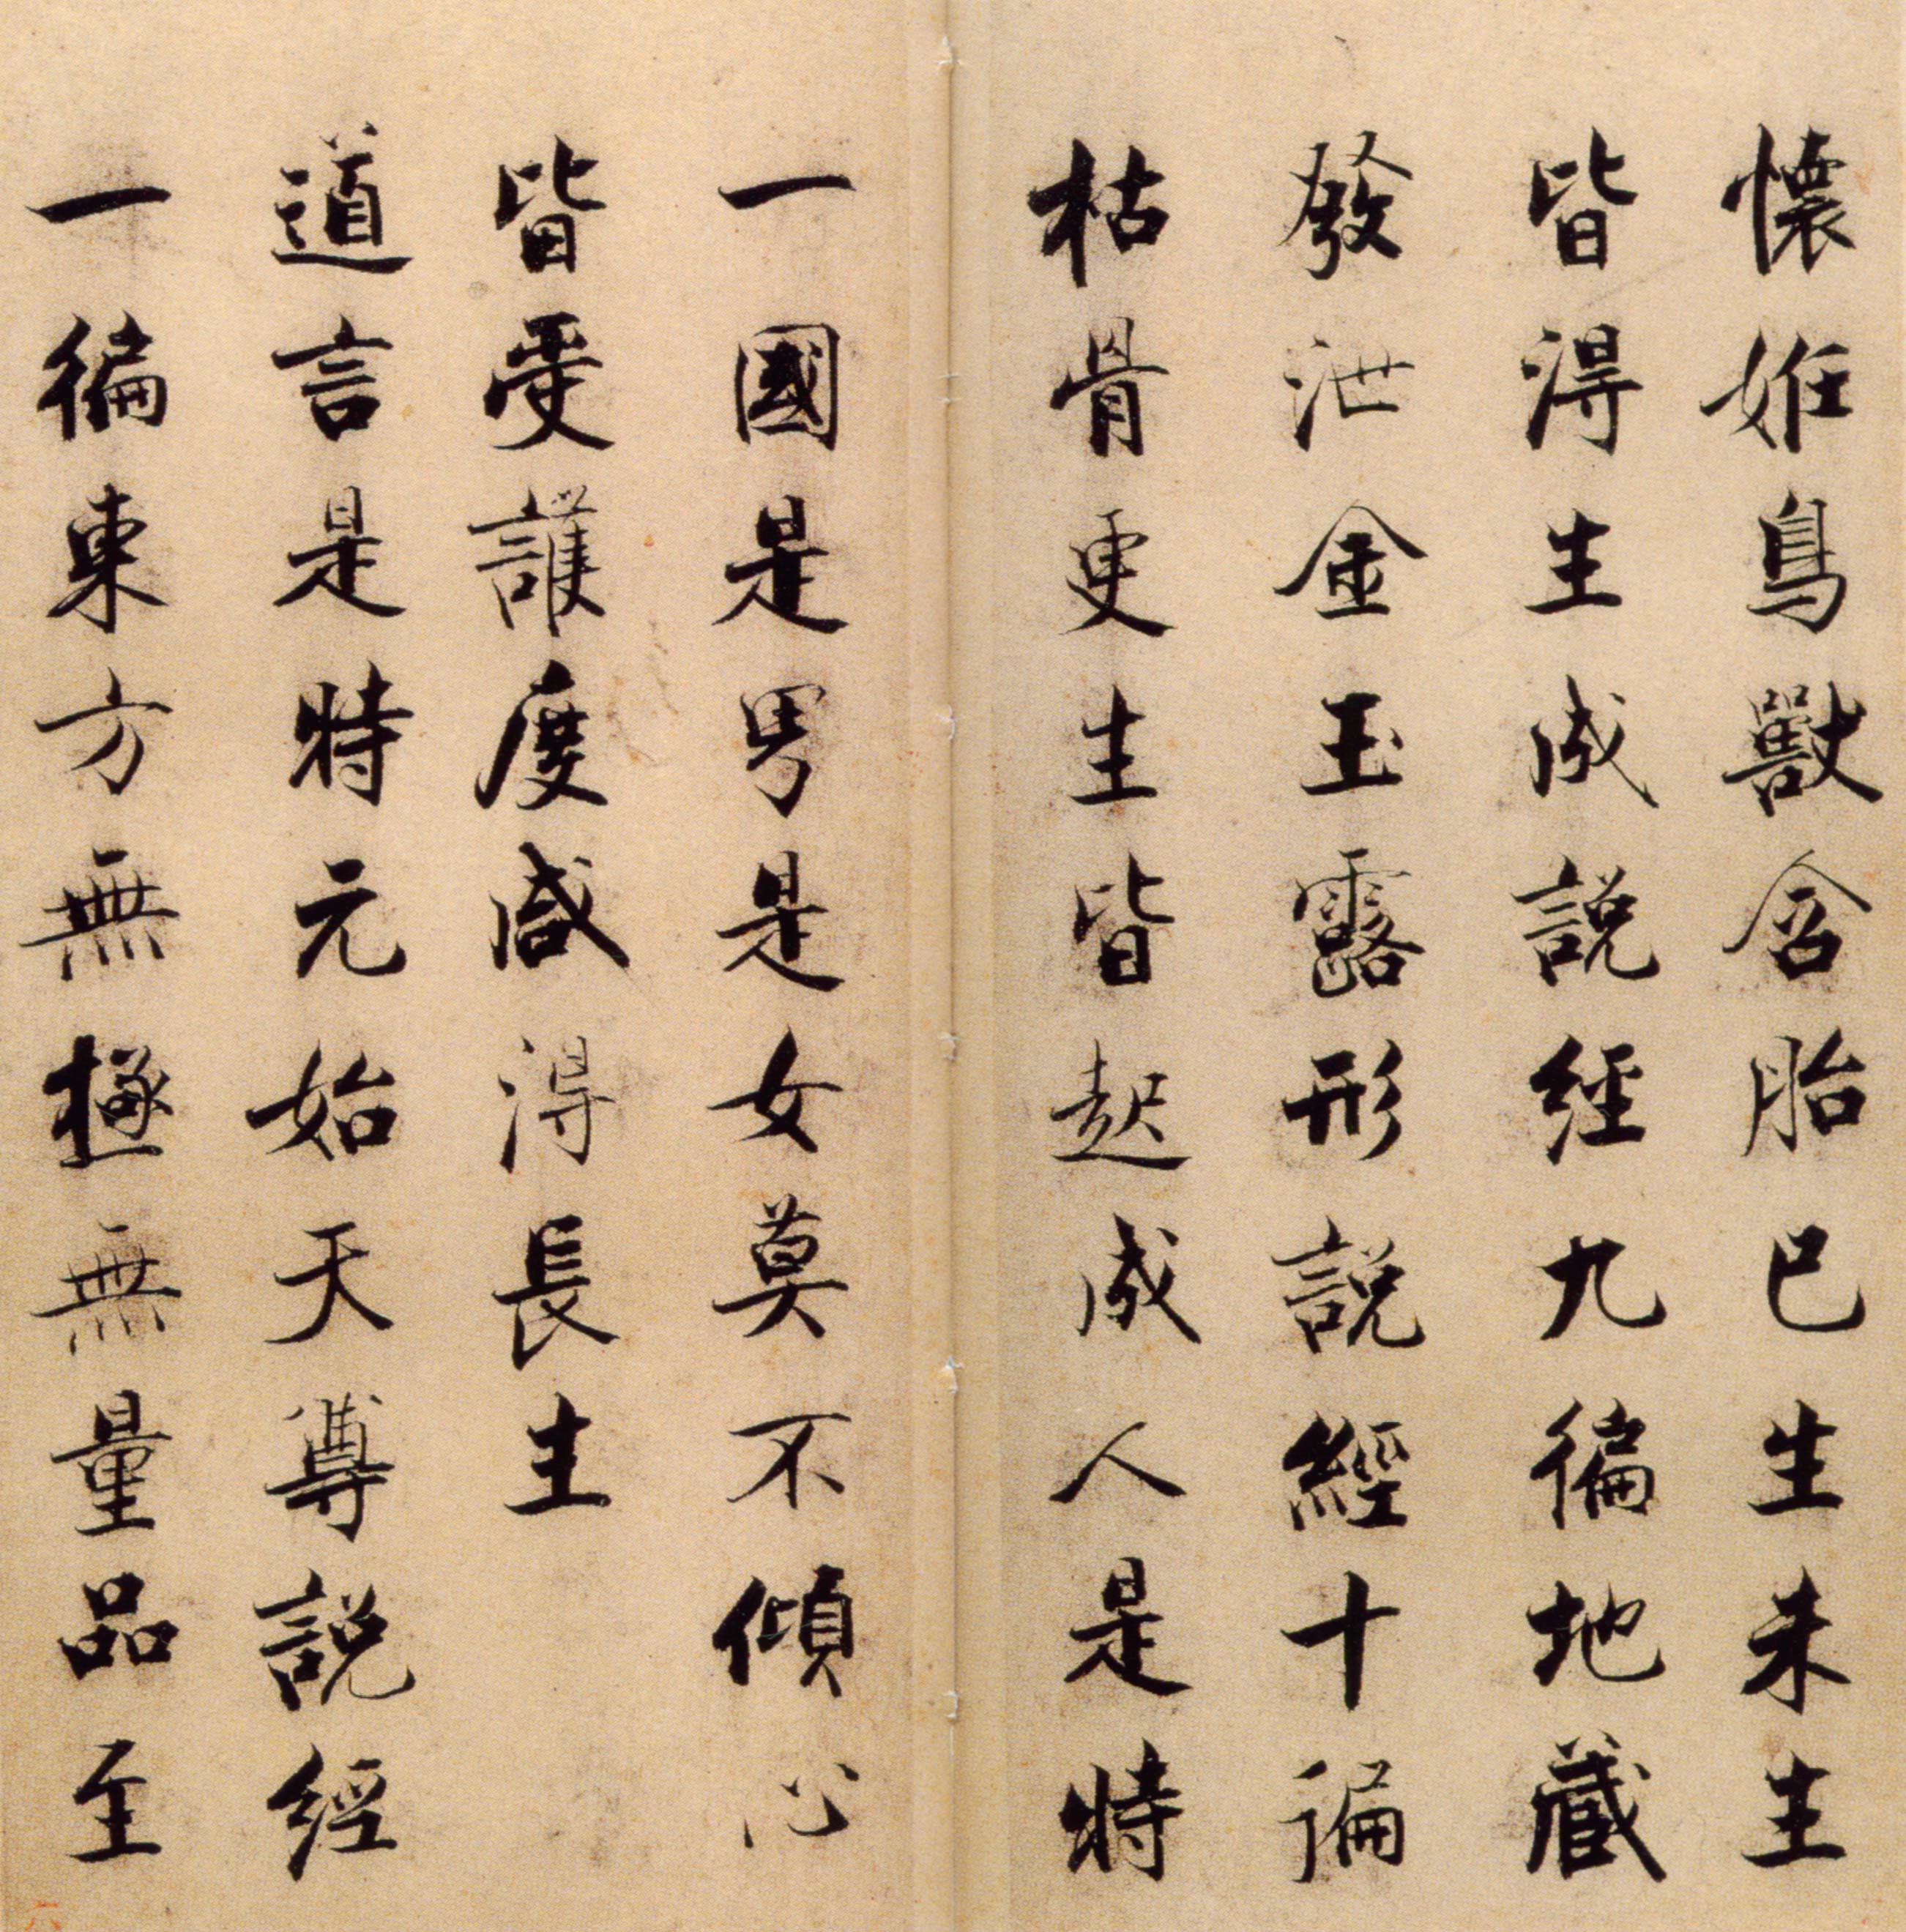 懷姙鳥獸含胎已生未生
皆得生成說經九徧地藏
發泄金玉露形說經十徧
枯骨更生皆起成人是時
一國是男是女莫不傾心
皆受護度咸得長生
道言是時元始天尊說經
一徧東方無極無量品至
六